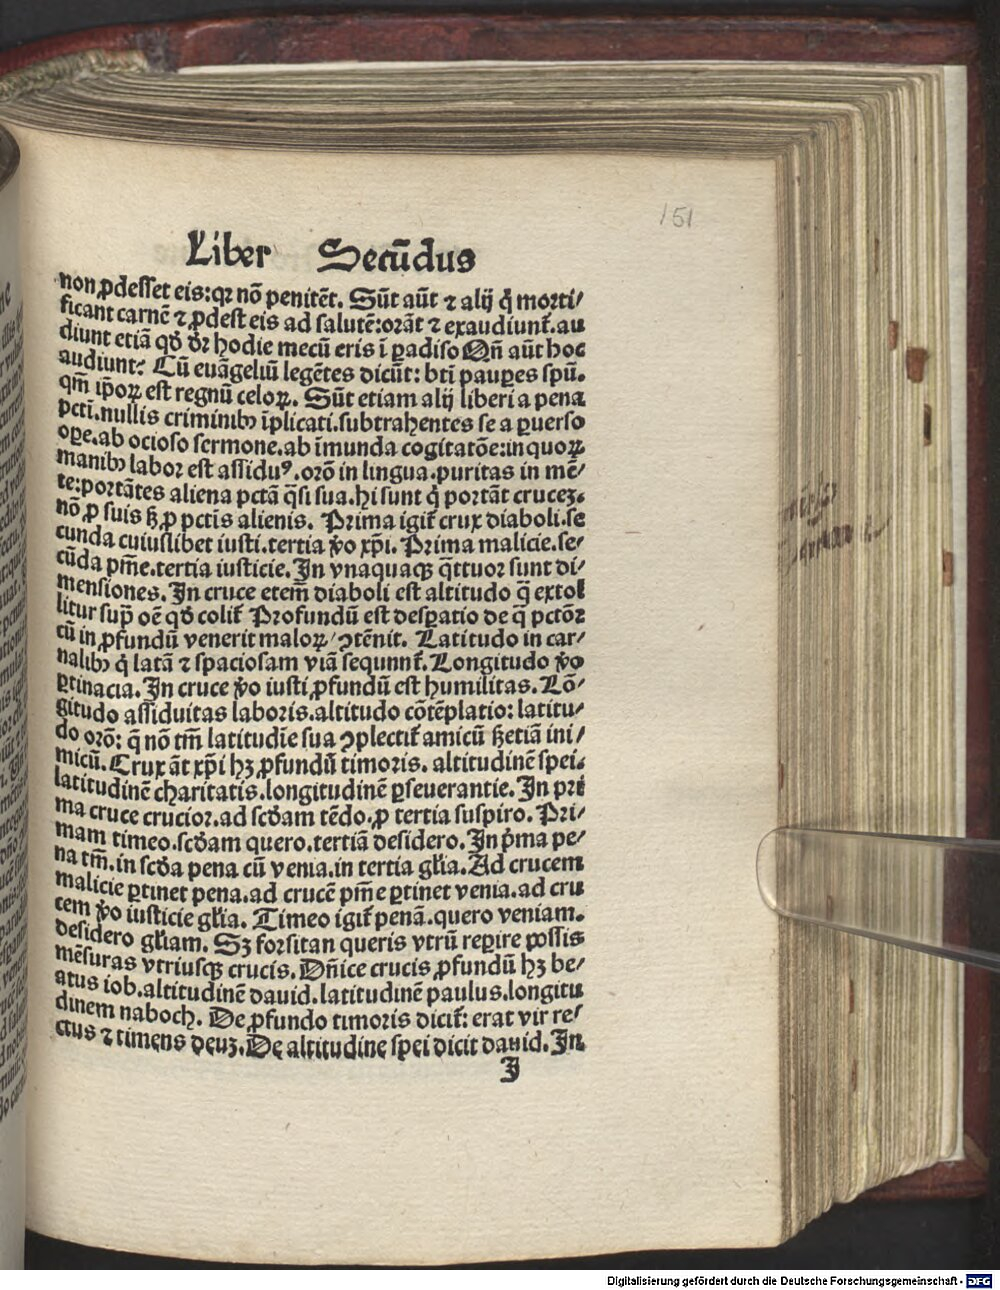 151
Liber Secūdus
non ꝓdesset eis: qꝛ nō penitēt. Sūt aūt ⁊ alij q̇ moꝛti⸗
ficant carnē ⁊ ꝓdest eis ad salutē: oꝛāt ⁊ exaudiunt᷑. au
diunt etiā qđ dꝛ hodie mecū eris ī ꝑadiso Qn̄ aūt hoc
audiunt: Cū euāgeliū legētes dicūt: bti ̄ pauꝑes spū.
qm̄ ip̄oꝝ est regnū celoꝝ. Sūt etiam alij liberi a pena
pctī. nullis criminibꝰ īplicati. subtrahentes se a ꝑuerso
oꝑe. ab ocioso sermone. ab īmunda cogitatōe: in quoꝝ
manibꝰ laboꝛ est assiduꝰ. oꝛō in lingua. puritas in mē⸗
te: poꝛtātes aliena pctā q̄si sua. hi sunt q̇ poꝛtāt cruceꝫ.
nō ꝓ suis ꝫ ꝓ pctīs alienis. Prima igit᷑ crux diaboli. se
cunda cuiuslibet iusti. tertia ꝟo xp̄i. Prima malicie. se⸗
cūda pm̄e. tertia iusticie. In vnaquaqꝫ q̄ttuoꝛ sunt di⸗
mensiones. In cruce etem̄ diaboli est altitudo q̄ extol
litur sup̄ oē qđ colit᷑ Profundū est desꝑatio de q̄ pctōꝛ
cū in ꝓfundū venerit maloꝝ/ ꝯtēnit. Latitudo in car⸗
nalibꝰ q̇ latā ⁊ spaciosam viā sequnnt᷑. Longitudo ꝟo
ꝑtinacia. In cruce ꝟo iusti ꝓfundū est humilitas. Lō⸗
gitudo assiduitas laboꝛis. altitudo cōtēplatio: latitu⸗
do oꝛō: q̄ nō tm̄ latitudīe sua ꝯplectit᷑ amicū ꝫ etiā ini⸗
micū. Crux āt xp̄i hꝫ ꝓfundū timoꝛis. altitudinē spei.
latitudinē charitatis. longitudinē ꝑseuerantie. In pri
ma cruce crucioꝛ. ad scđam tēdo. ꝓ tertia suspiro. Pri⸗
mam timeo. scđam quero. tertiā desidero. In pͥma pe⸗
na tm̄. in scđa pena cū venia. in tertia głia. Ad crucem
malicie ꝑtinet pena. ad crucē pm̄e ꝑtinet venia. ad cru
cem ꝟo iusticie głia. Timeo igit᷑ penā. quero veniam.
desidero głiam. Sꝫ foꝛsitan queris vtrū reꝑire possis
mēsuras vtriusqꝫ crucis. Dn̄ice crucis ꝓfundū hꝫ be⸗
atus iob. altitudinē dauid. latitudinē paulus. longitu
dinem naboch. De ꝓfundo timoꝛis dicit᷑: erat vir re⸗
ctus ⁊ timens deuꝫ. De altitudine spei dicit dauid. In
J
Digitalisierung gefördert durch die Deutsche Forschungsgemeinschaft - DFG